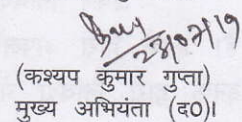 23/07/19
(कश्यप कुमार गुप्ता)
मुख्य अभियंता (द0)।